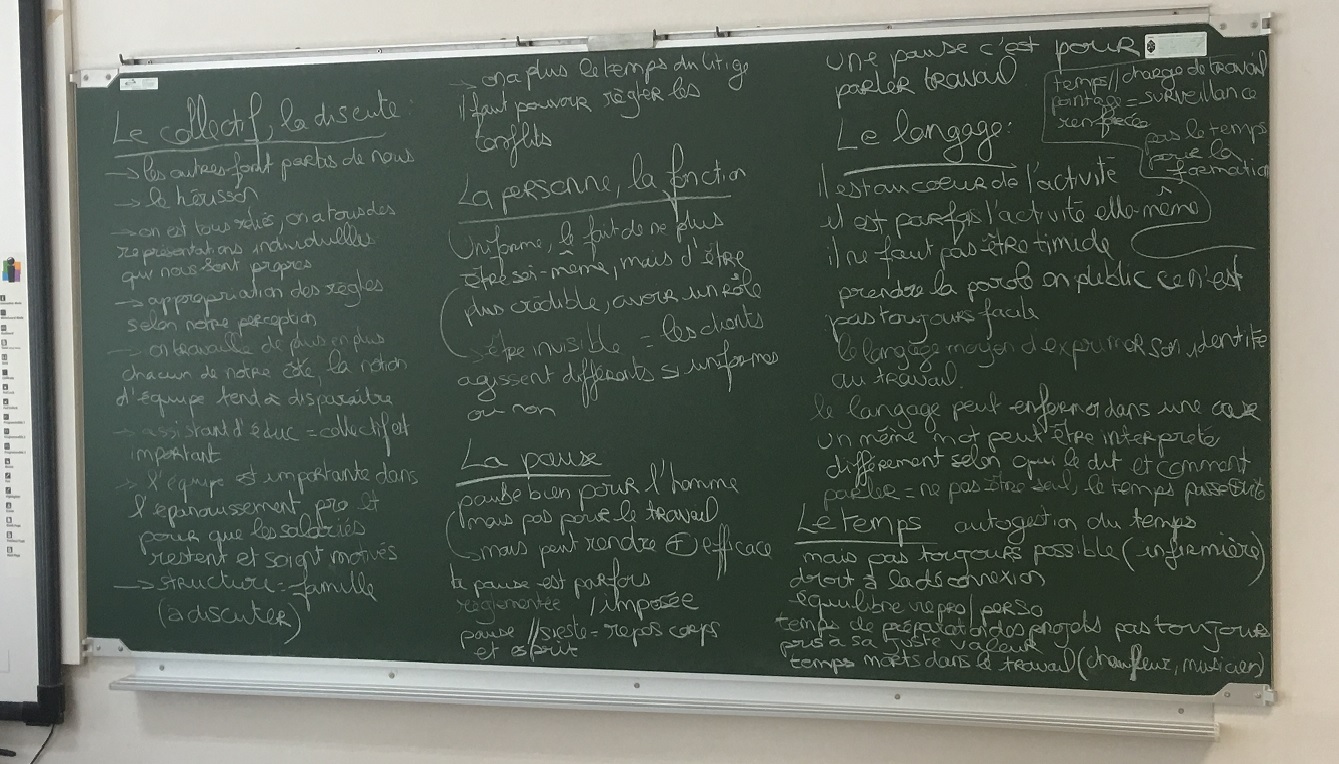 Le collectif, la discute:
→ les autres font partis de nous
→ le hérisson
→ on est tous reliés, on a tous des
représentations individuelles
qui nous sont propres
→ appropriation des règles
selon notre perception
→ on travaille de plus en plus
chacun de notre côté, la notion
d'équipe tend à disparaître
→ assistant d'éduc = collectif et
important
→ l'équipe est importante dans
l'épanouissement pro et
pour que les salariés
restent et soient motivés
→ structure = famille
(à discuter)
→ on a plus le temps du litige
il faut pouvoir règler les
conflits
La personne, la fonction
Uniforme, le fait de ne plus
être soi-même, mais d'être
plus crédible, avoir un rôle
→ être invisible = les clients
agissent différents si uniformes
ou non
La pause
pause bien pour l'homme
mais pas pour le travail
→ mais peut rendre + efficace
la pause est parfois
règlementée / imposée
pause // sieste = repos corps
et esprit
Une pause c'est pour
parler travail
Le langage:
il est au coeur de l'activité
il est parfois l'activité elle-même
il ne faut pas être timide
prendre la parole en public ce n'est
pas toujours facile
le langage moyen d'exprimer son identité
au travail.
le langage peut enfermer dans une case
un même mot peut être interpreté
différement selon qui le dit et comment
parler = ne pas être seul, le temps passe vite
Le temps autogestion du temps
mais pas toujours possible (infirmière)
droit à la déconnexion
équilibre vie pro/perso
temps de préparation des projets pas toujours
pris à sa juste valeur
temps morts dans le travail (chauffeur, musicien)
temps // charge de travail
pointage = surveillance
renforcée
pas le temps
pour la
formation